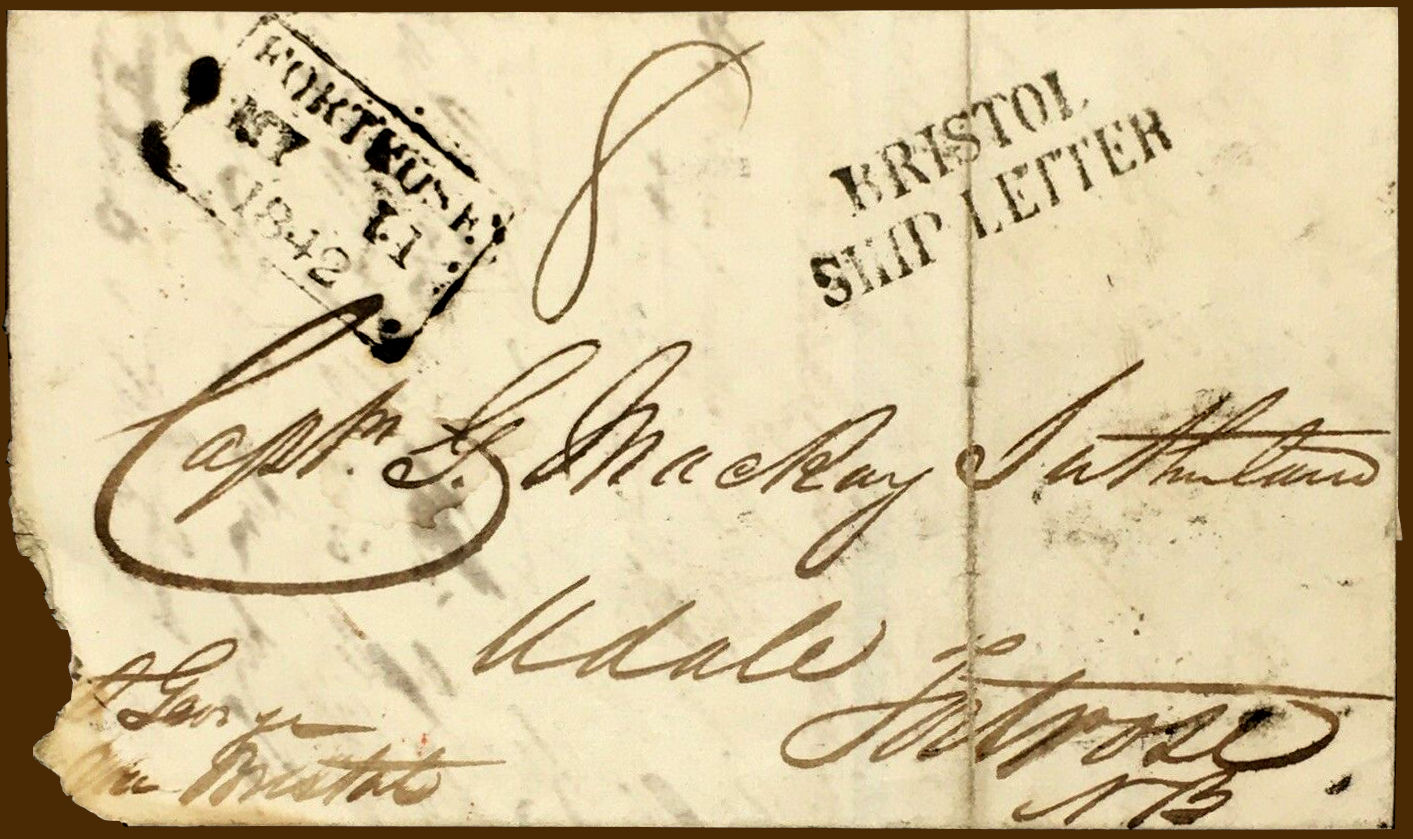 FORTROSE
MY 11
1842
8
BRISTOL
SHIP LETTER
Captn. G. Mackay Sutherland
Udale
Fortrose
NB
George
Bristol